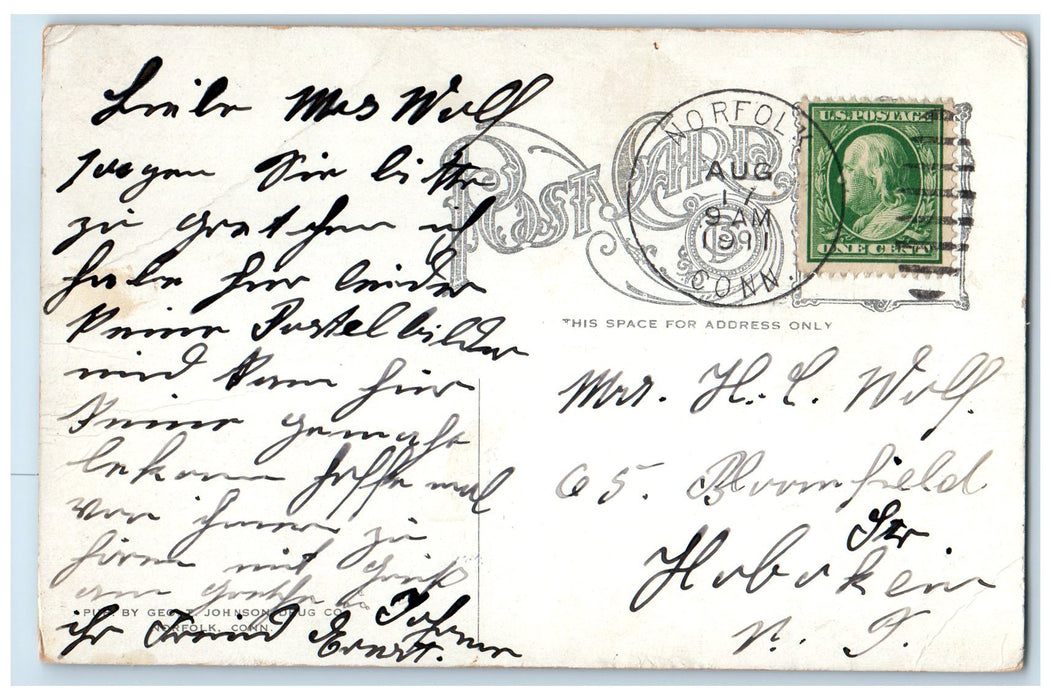 Liebe Mrs Wolf
sagen Sie bitte
zu Gretchen ich
habe hier leider
keine Pastelbilder
und kann hier
keine gemahlt
bekomm hoffe mal
von ihnen zu
hören mit Gruß
an Grethe
ihr Freund Johann
Ernst.
PUB. BY GEO. T. JOHNSON DRUG CO.
NORFOLK, CONN.
POST CARD
NORFOLK
AUG
17
9 AM
1911
CONN.
U.S. POSTAGE
ONE CENT
THIS SPACE FOR ADDRESS ONLY
Mrs. H. L. Wolf.
65. Bloomfield
Str
Hoboken
N. J.